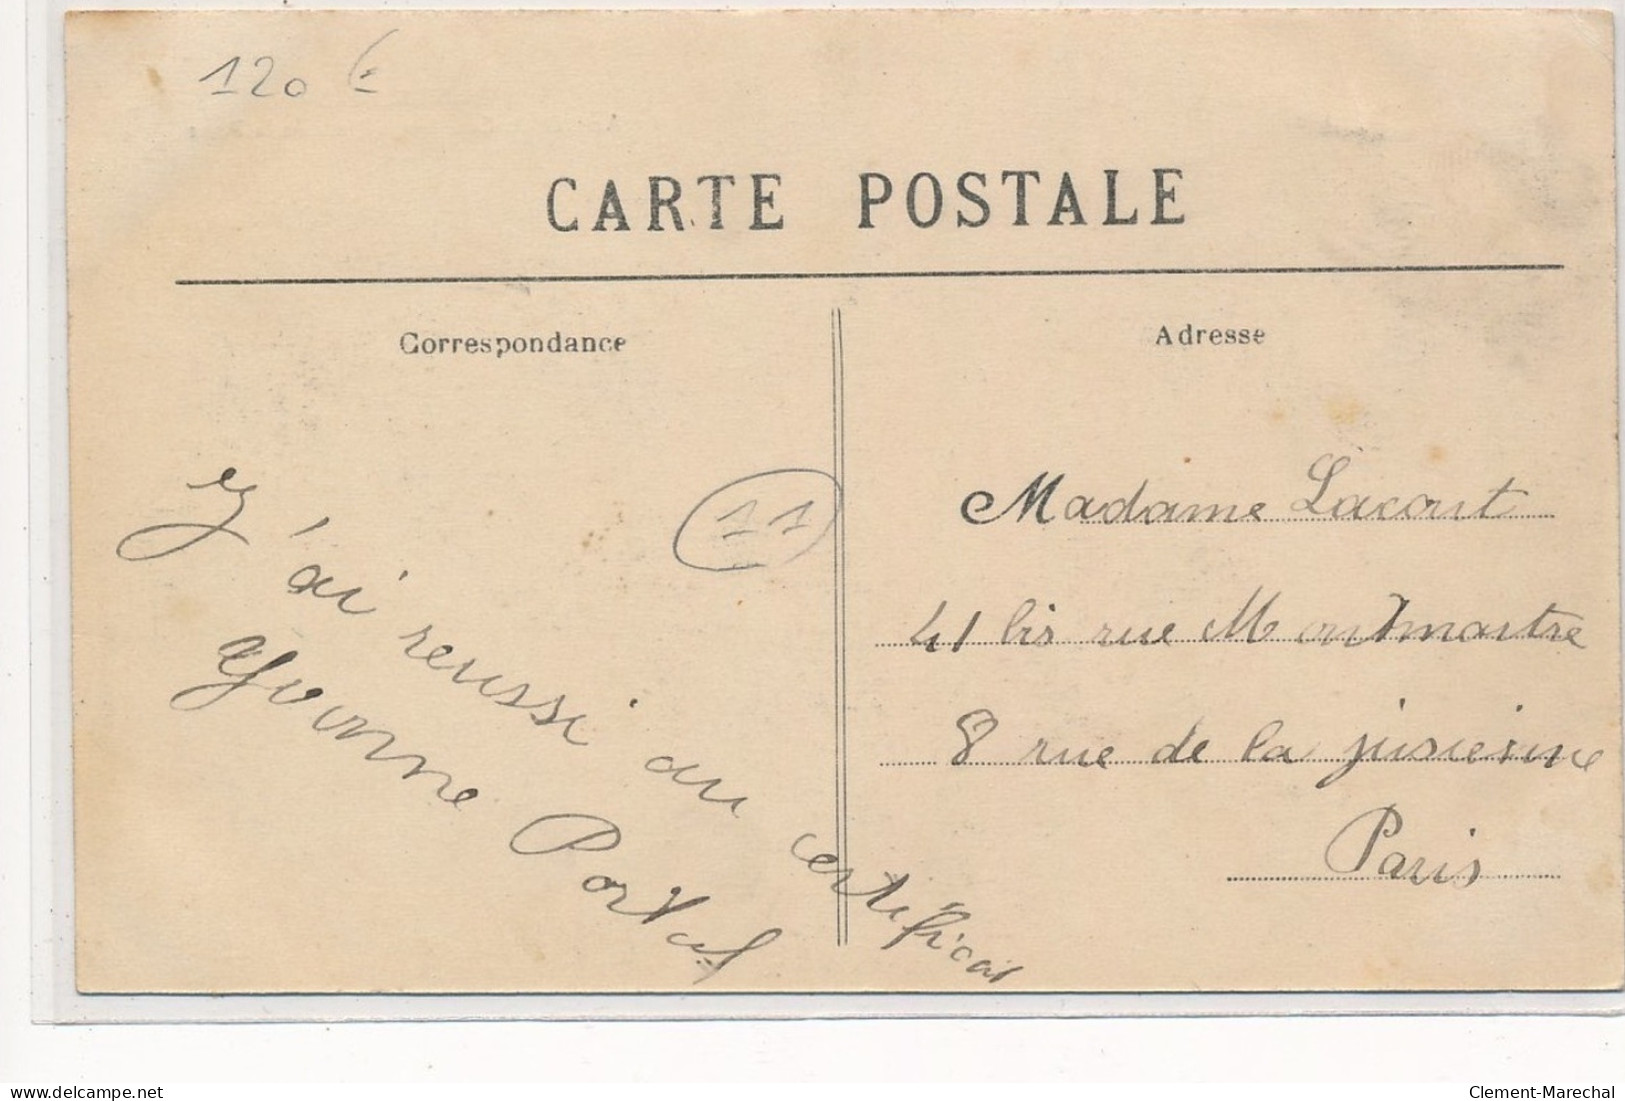 120 €
CARTE POSTALE
Correspondance
Adresse
J'ai reussi au certificat
Yvonne Portal
11
Madame Lacout
41 bis rue Montmartre
8 rue de la jusiesine
Paris
delcampe.net
Clement-Marechal